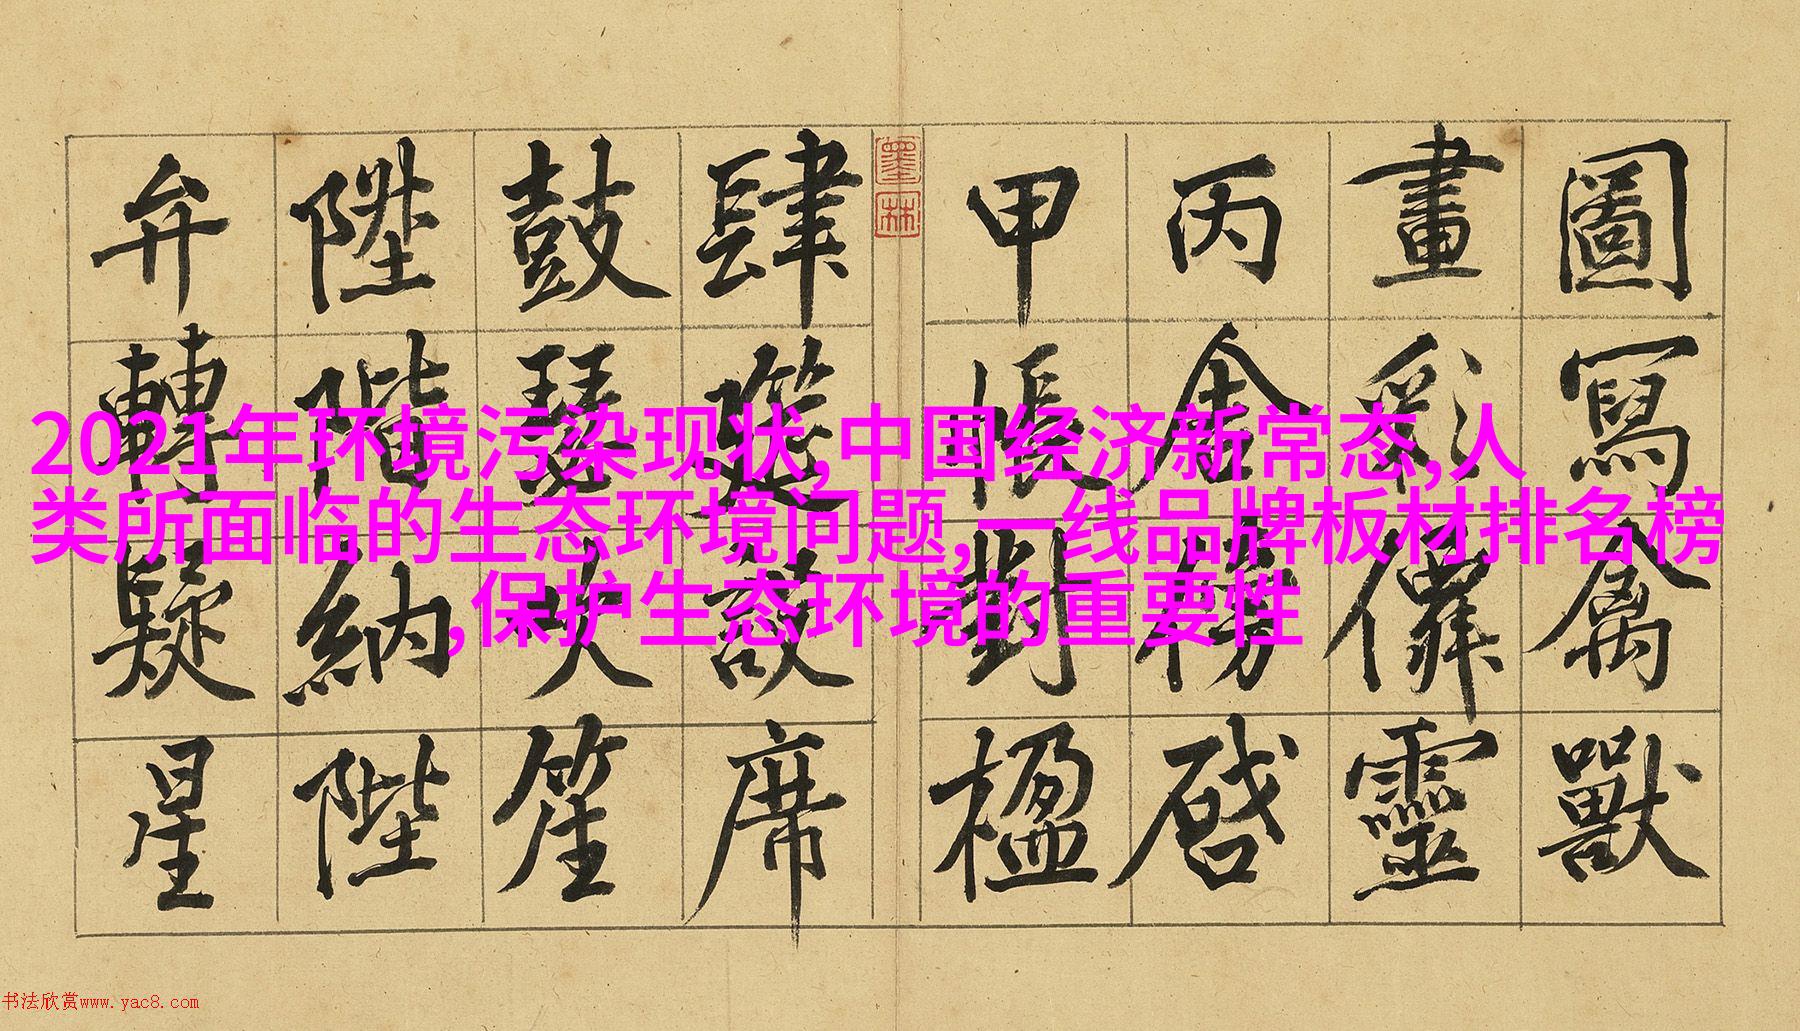 圖寫禽獸
畫彩僊靈
丙舍傍啓
甲帳對楹
墨林
肆筵設席
鼓瑟吹笙
陞階納陛
弁轉疑星
2021年环境污染现状,中国经济新常态,人
类所面临的生态环境问题,一线品牌板材排名榜
,保护生态环境的重要性
书法欣赏www.yac8.com